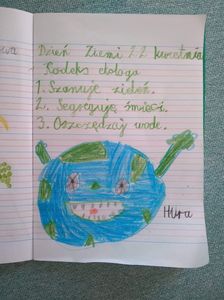 wa
Dzień Ziemi 22 kwietnia
Kodeks ekologa
1. Szanuję zieleń.
2. Segreguję śmieci.
3. Oszczędzaj wodę.
Hura